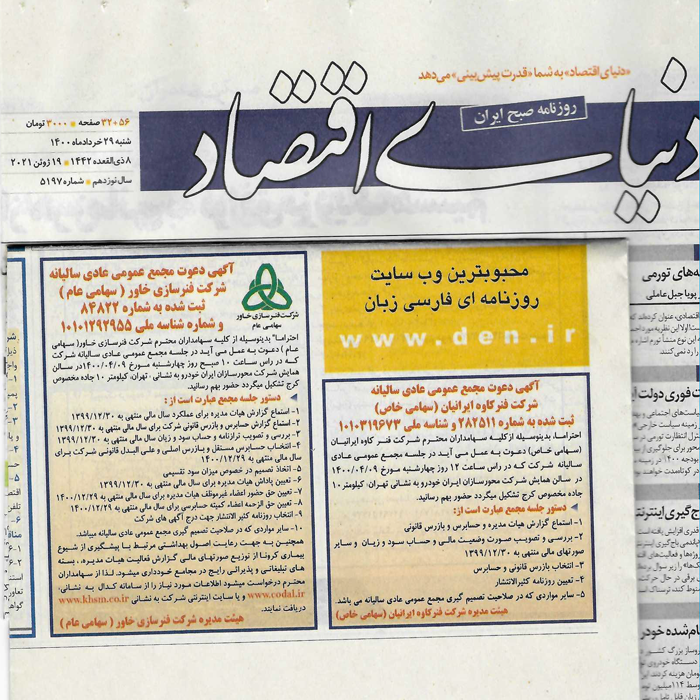 «دنیای اقتصاد» به شما «قدرت پیش‌بینی» می‌دهد
دنیای اقتصاد
روزنامه صبح ایران
۳۲+۵۶ صفحه ■ ۳۰۰۰ تومان
شنبه ۲۹ خردادماه ۱۴۰۰
۸ ذی‌القعده ۱۴۴۲ ■ ۱۹ ژوئن ۲۰۲۱
سال نوزدهم ■ شماره ۵۱۹۷
محبوبترین وب سایت
روزنامه ای فارسی زبان
www.den.ir
آگهی دعوت مجمع عمومی عادی سالیانه
شرکت فنرکاوه ایرانیان (سهامی خاص)
ثبت شده به شماره ۲۸۲۵۱۱ و شناسه ملی ۱۰۱۰۳۱۹۶۷۳
احتراما، بدینوسیله از کلیه سهامداران محترم شرکت فنر کاوه ایرانیان
(سهامی خاص) دعوت به عمل می آید در جلسه مجمع عمومی عادی
سالیانه شرکت که در راس ساعت ۱۲ روز چهارشنبه مورخ ۱۴۰۰/۰۴/۰۹
در سالن همایش شرکت محورسازان ایران خودرو به نشانی: تهران، کیلومتر ۱۰
جاده مخصوص کرج تشکیل میگردد حضور بهم رسانید.
◄ دستور جلسه مجمع عبارت است از:
۱- استماع گزارش هیات مدیره و حسابرس و بازرس قانونی
۲- بررسی و تصویب صورت وضعیت مالی و حساب سود و زیان و سایر
صورتهای مالی منتهی به ۱۳۹۹/۱۲/۳۰
۳- انتخاب بازرس قانونی و حسابرس
۴- تعیین روزنامه کثیرالانتشار
۵- سایر مواردی که در صلاحیت تصمیم گیری مجمع عمومی عادی سالیانه می باشد.
هیئت مدیره شرکت فنرکاوه ایرانیان (سهامی خاص)
آگهی دعوت مجمع عمومی عادی سالیانه
شرکت فنرسازی خاور ( سهامی عام )
ثبت شده به شماره ۸۴۸۲۲
و شماره شناسه ملی ۱۰۱۰۱۲۹۲۹۵۵
شرکت فنرسازی خاور
سهامی عام
احتراما" بدینوسیله از کلیه سهامداران محترم شرکت فنرسازی خاور( سهامی
عام ) دعوت به عمل می آید در جلسه مجمع عمومی عادی سالیانه شرکت
که در راس ساعت ۱۰ صبح روز چهارشنبه مورخ ۱۴۰۰/۰۴/۰۹در سالن
همایش شرکت محورسازان ایران خودرو به نشانی: تهران، کیلومتر ۱۰ جاده مخصوص
کرج تشکیل میگردد حضور بهم رسانید.
◄ دستور جلسه مجمع عبارت است از :
۱- استماع گزارش هیات مدیره برای عملکرد سال مالی منتهی به ۱۳۹۹/۱۲/۳۰
۲- استماع گزارش حسابرس و بازرس قانونی شرکت برای سال مالی منتهی به ۱۳۹۹/۱۲/۳۰
۳- بررسی و تصویب ترازنامه و حساب سود و زیان سال مالی منتهی به ۱۳۹۹/۱۲/۳۰
۴- انتخاب حسابرس مستقل و بازرس اصلی و علی البدل قانونی شرکت برای
سال مالی منتهی به ۱۴۰۰/۱۲/۲۹
۵- اتخاذ تصمیم در خصوص میزان سود تقسیمی
۶- تعیین پاداش هیات مدیره برای سال مالی منتهی به ۱۳۹۹/۱۲/۳۰
۷- تعیین حق حضور اعضاء غیرموظف هیات مدیره برای سال مالی منتهی به ۱۴۰۰/۱۲/۲۹
۸- تعیین حق الزحمه اعضاء کمیته حسابرسی برای سال مالی منتهی به ۱۴۰۰/۱۲/۲۹
۹- انتخاب روزنامه کثیر الانتشار جهت درج آگهی های شرکت
۱۰- سایر مواردی که در صلاحیت تصمیم گیری مجمع عمومی عادی سالیانه میباشد.
همچنین به جهت رعایت اصول بهداشتی مرتبط با پیشگیری از شیوع
بیماری کرونا از توزیع صورتهای مالی و گزارش فعالیت هیات مدیره ، بسته
های تبلیغاتی و پذیرائی رایج در مجامع خودداری میشود. لذا از سهامداران
محترم درخواست میشود اطلاعات مورد نیاز را از سامانه کدال به نشانی:
www.codal.ir و یا سایت اینترنتی شرکت به نشانی www.khsm.co.ir
دریافت نمایند.
هیئت مدیره شرکت فنرسازی خاور ( سهامی عام )
پویا جبل عاملی